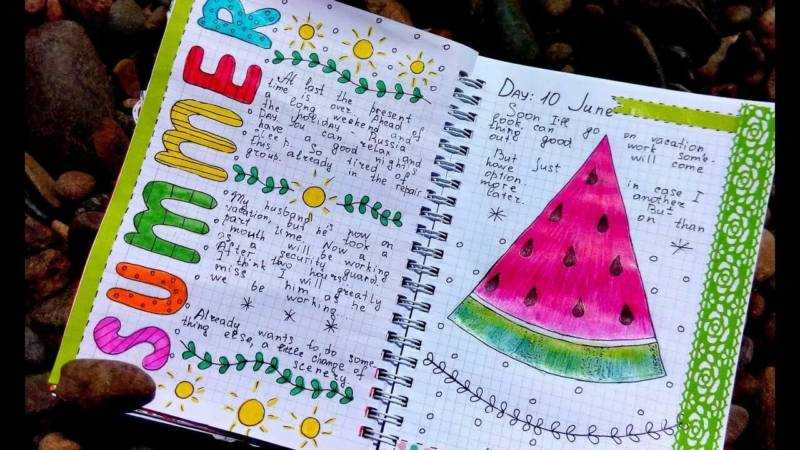 SUMMER
At last the present
time is over. Ahead of
a the long weekend and
Day holiday Russia
You can relax and
have a good night's
sleep. So tired of
this already in the repair
group.
My husband is now on
vacation, but he took a
part time. Now a
month will be working
as a security guard.
After two hours
I think I will greatly
miss him as he
we be working...
Already wants to do some
thing else, a little change of
scenery.
Day: 10 June
Soon I'll go on vacation
look can work some-
thing good will come
out.
But just in case I
have another
option. But
more on than
later.